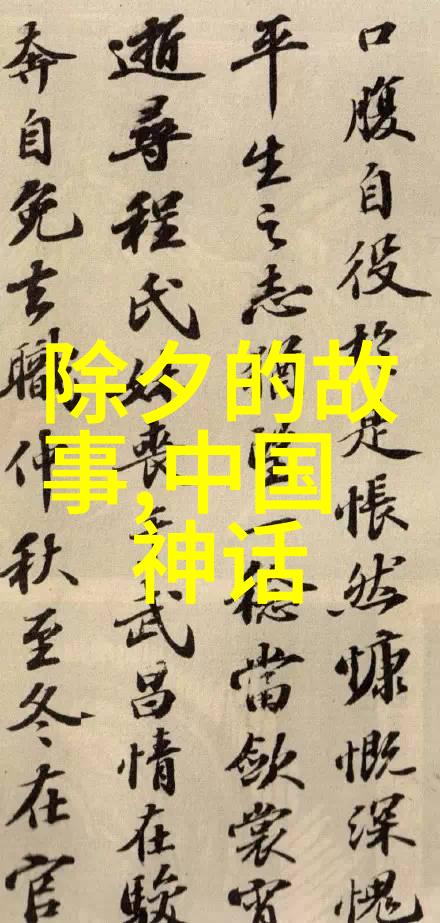 除夕的故
事,中国
神话
口腹自役於是悵然慷慨深愧
平生之志猶望一稔當斂裳宵
逝尋程氏妹喪于武昌情在駿
奔自免去職仲秋至冬在官